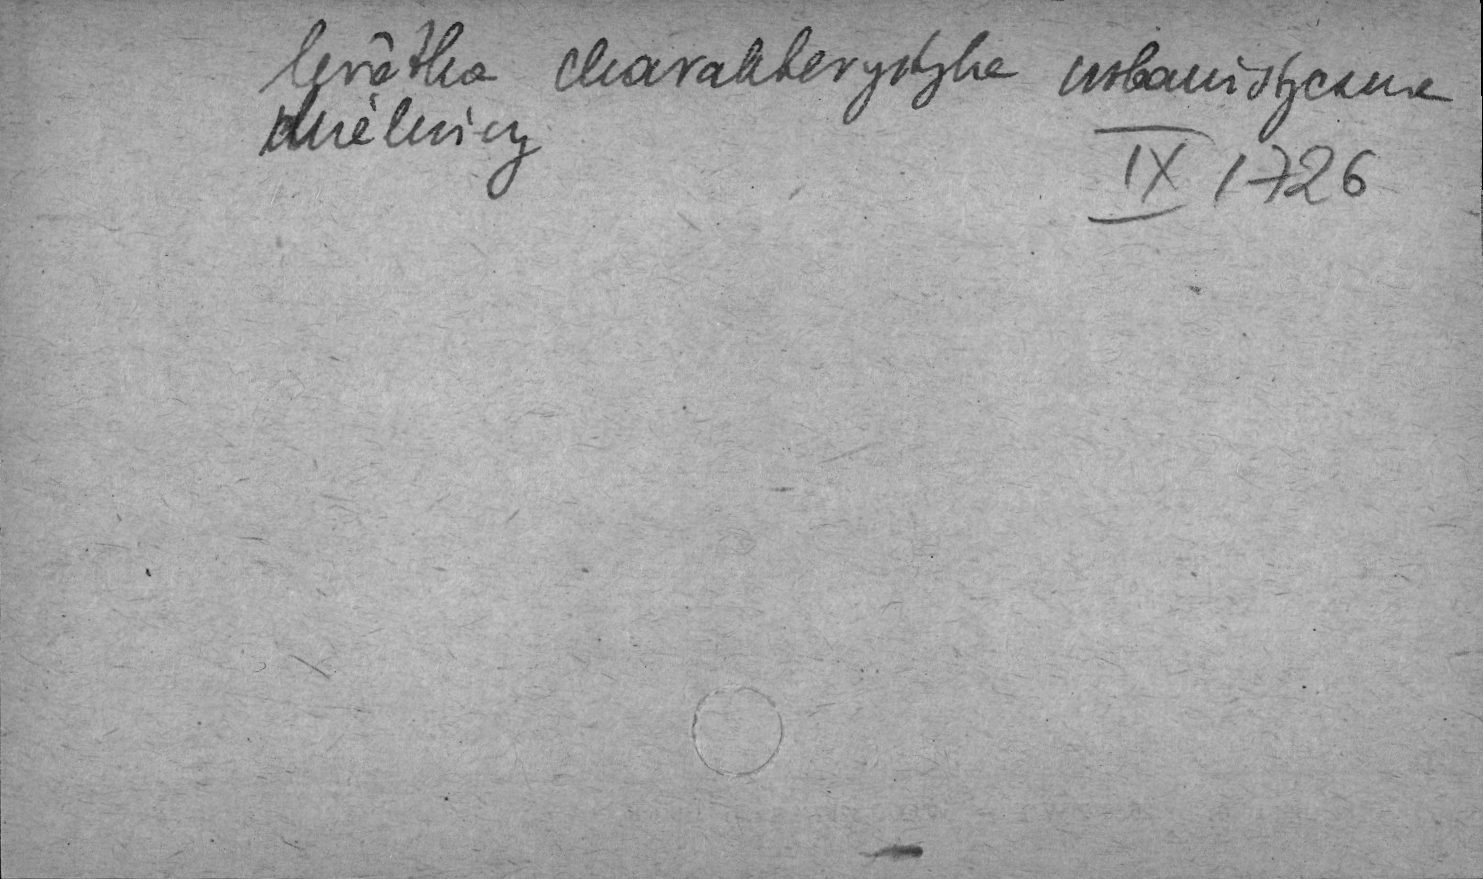 krótka charakterystyka urbanistyczna
dzielnicy
IX 1726